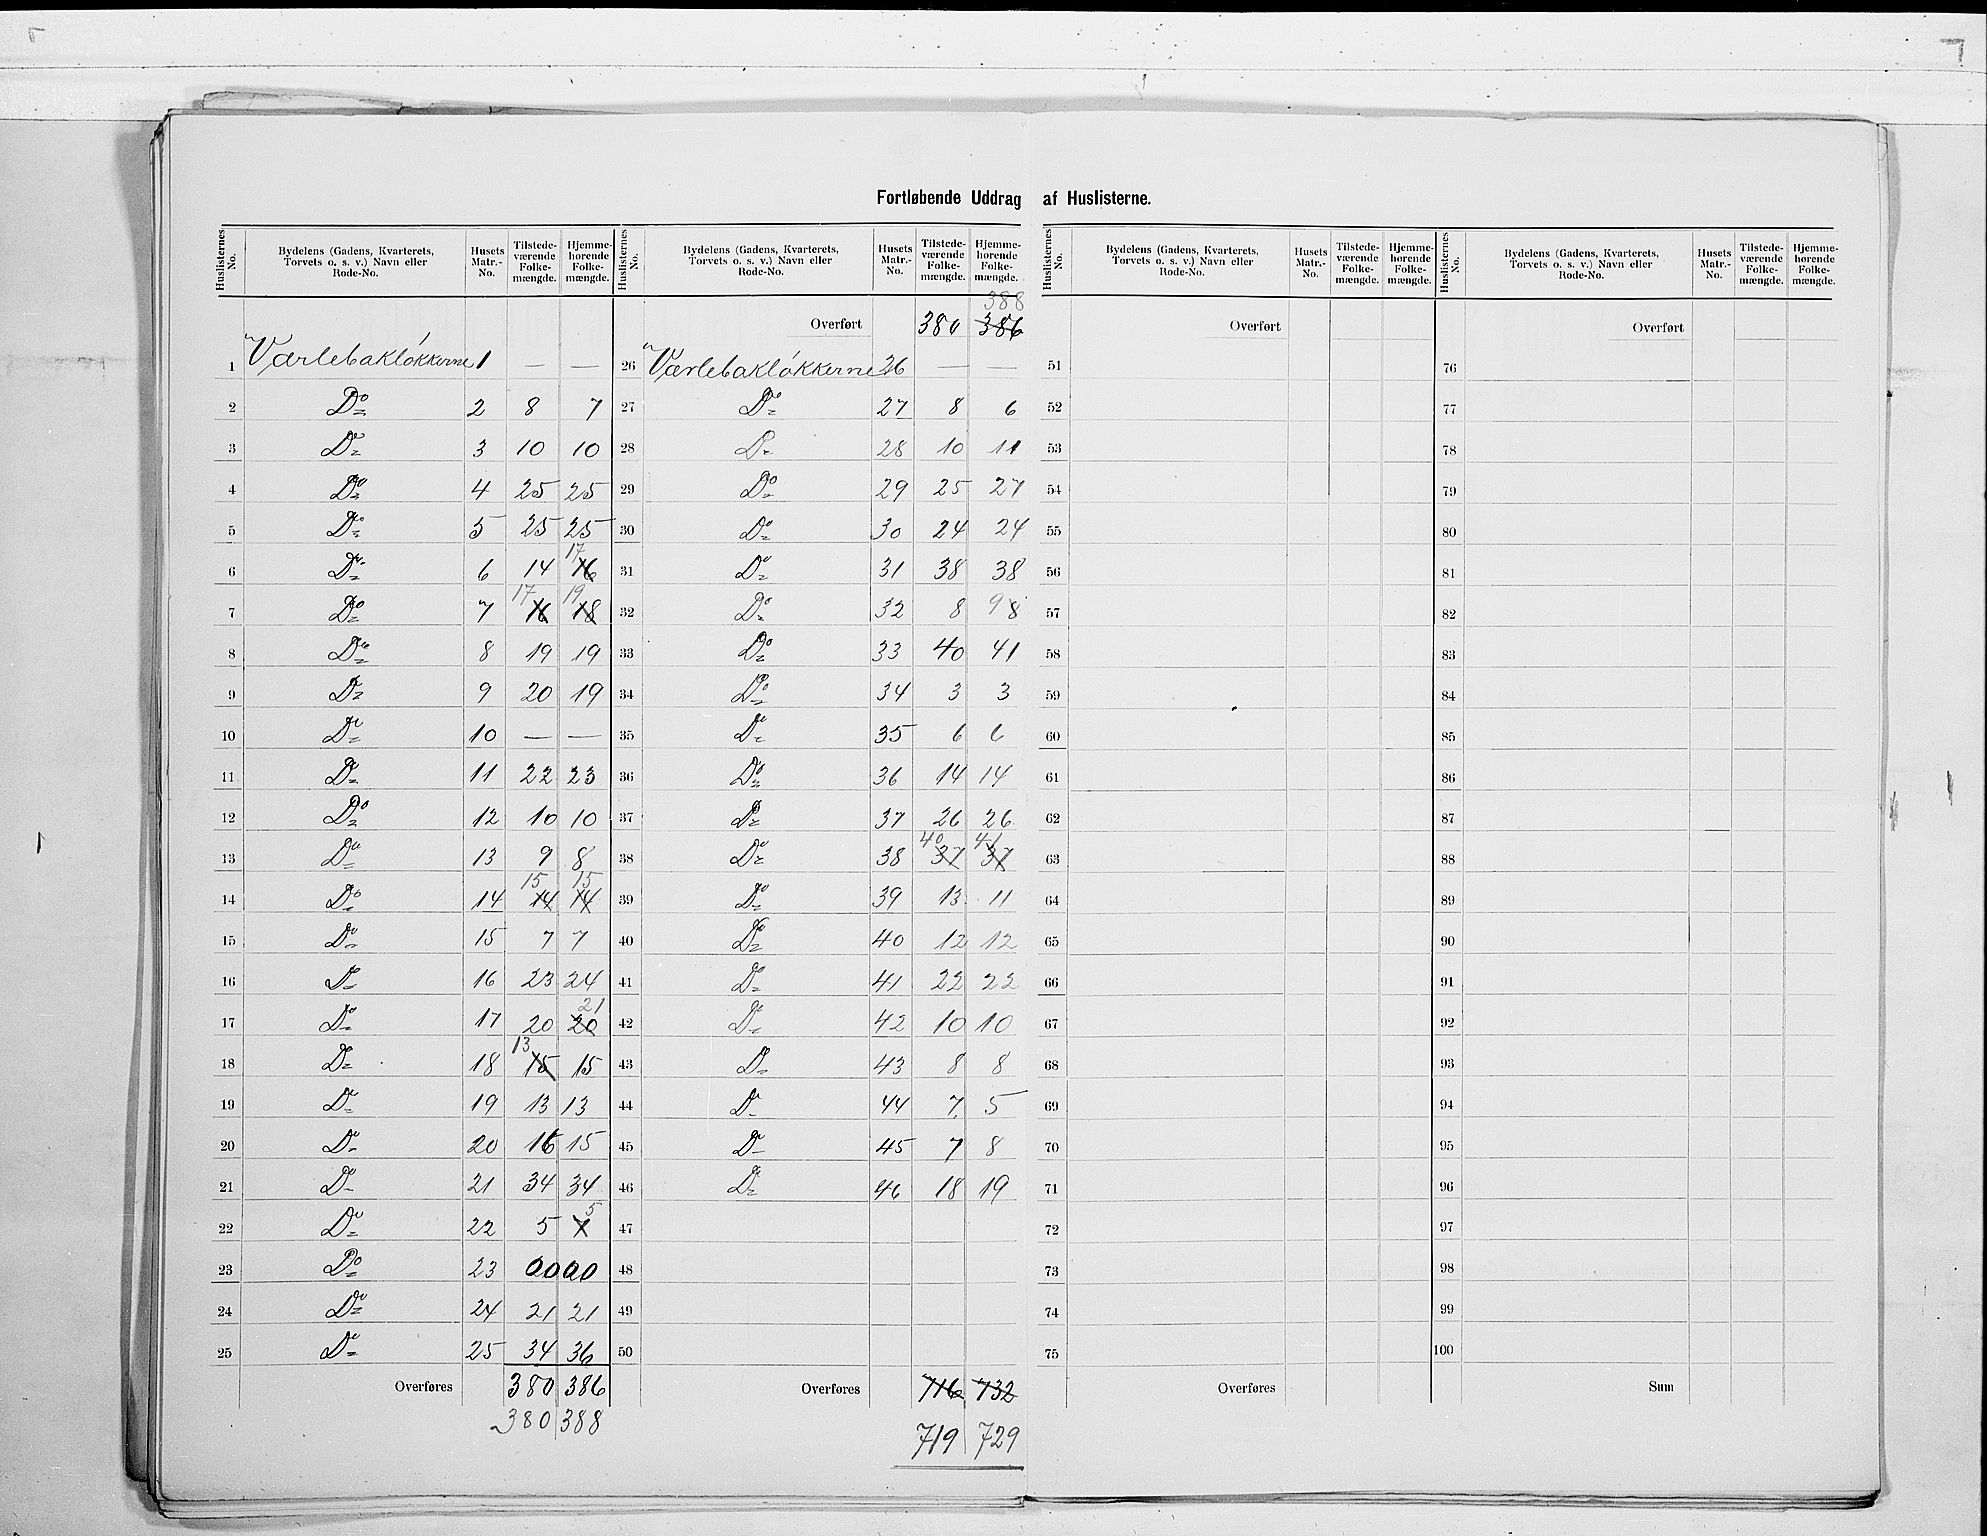 Fortløbende Uddrag af Huslisterne.
Huslisternes No. | Bydelens (Gadens, Kvarterets, Torvets o. s. v.) Navn eller Rode-No. | Husets Matr.-No. | Tilstede-værende Folke-mængde. | Hjemme-hørende Folke-mængde.
1 Værlebakløkkerne 1 — —
2 Do 2 8 7
3 Do 3 10 10
4 Do 4 25 25
5 Do 5 25 25
6 Do 6 14 16 17
7 Do 7 16 17 18 19
8 Do 8 19 19
9 Do 9 20 19
10 Do 10 — —
11 Do 11 22 23
12 Do 12 10 10
13 Do 13 9 8
14 Do 14 14 15 14 15
15 Do 15 7 7
16 Do 16 23 24
17 Do 17 20 20 21
18 Do 18 15 13 15
19 Do 19 13 13
20 Do 20 16 15
21 Do 21 34 34
22 Do 22 5 5
23 Do 23 00 00
24 Do 24 21 21
25 Do 25 34 36
Overføres 380 386
380 388
Huslisternes No. | Bydelens (Gadens, Kvarterets, Torvets o. s. v.) Navn eller Rode-No. | Husets Matr.-No. | Tilstede-værende Folke-mængde. | Hjemme-hørende Folke-mængde.
388
Overført 380 386
26 Værlebakløkkerne 26 — —
27 Do 27 8 6
28 Do 28 10 11
29 Do 29 25 27
30 Do 30 24 24
31 Do 31 38 38
32 Do 32 8 9 8
33 Do 33 40 41
34 Do 34 3 3
35 Do 35 6 6
36 Do 36 14 14
37 Do 37 26 26
38 Do 38 37 40 37 41
39 Do 39 13 11
40 Do 40 12 12
41 Do 41 22 22
42 Do 42 10 10
43 Do 43 8 8
44 Do 44 7 5
45 Do 45 7 8
46 Do 46 18 19
47
48
49
50
Overføres 716 732
719 729
Huslisternes No. | Bydelens (Gadens, Kvarterets, Torvets o. s. v.) Navn eller Rode-No. | Husets Matr.-No. | Tilstede-værende Folke-mængde. | Hjemme-hørende Folke-mængde.
Overført
51
52
53
54
55
56
57
58
59
60
61
62
63
64
65
66
67
68
69
70
71
72
73
74
75
Overføres
Huslisternes No. | Bydelens (Gadens, Kvarterets, Torvets o. s. v.) Navn eller Rode-No. | Husets Matr.-No. | Tilstede-værende Folke-mængde. | Hjemme-hørende Folke-mængde.
Overført
76
77
78
79
80
81
82
83
84
85
86
87
88
89
90
91
92
93
94
95
96
97
98
99
100
Sum